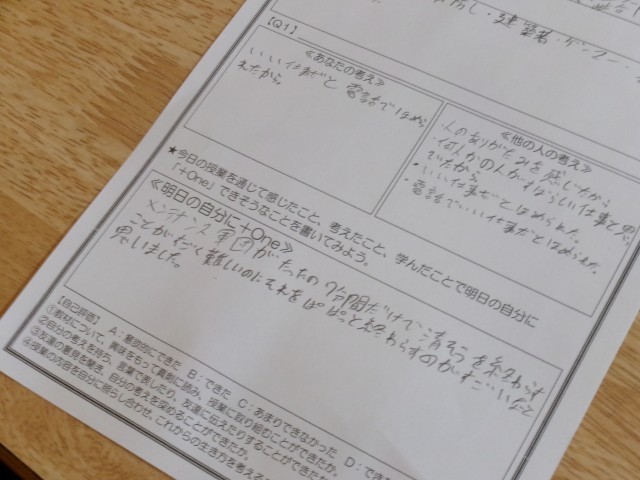 建築者・
【Q1】
≪あなたの考え≫
いい仕事だと電話でほめら
れたから。
≪他の人の考え≫
・人のありがたみを感じたから
・何人かの人がすばらしい仕事と思っ
でたから
・いい仕事だとほめられた。
・電話でいい仕事だとほめられた。
★今日の授業を通じて感じたこと、考えたこと、学んだことで明日の自分に
「+One」できそうなことを書いてみよう。
≪明日の自分に+One≫
メンテナンス軍団がたったの7分間だけで清そうを終わらす
ことがだく難しいのにそれをぱぱっと終わらすのがすごいなと
思いました。
【自己評価】 A：意欲的にできた B：できた C：あまりできなかった D：でき
①教材について、興味をもって真剣に読み、授業に取り組むことができたか。
②自分の考えを持ち、言葉で表したり、友達に伝えたりすることができたか。
③友達の意見を聞き、自分の考えを深めることができたか。
④授業の内容を自分に照らし合わせ、これからの生き方を考える